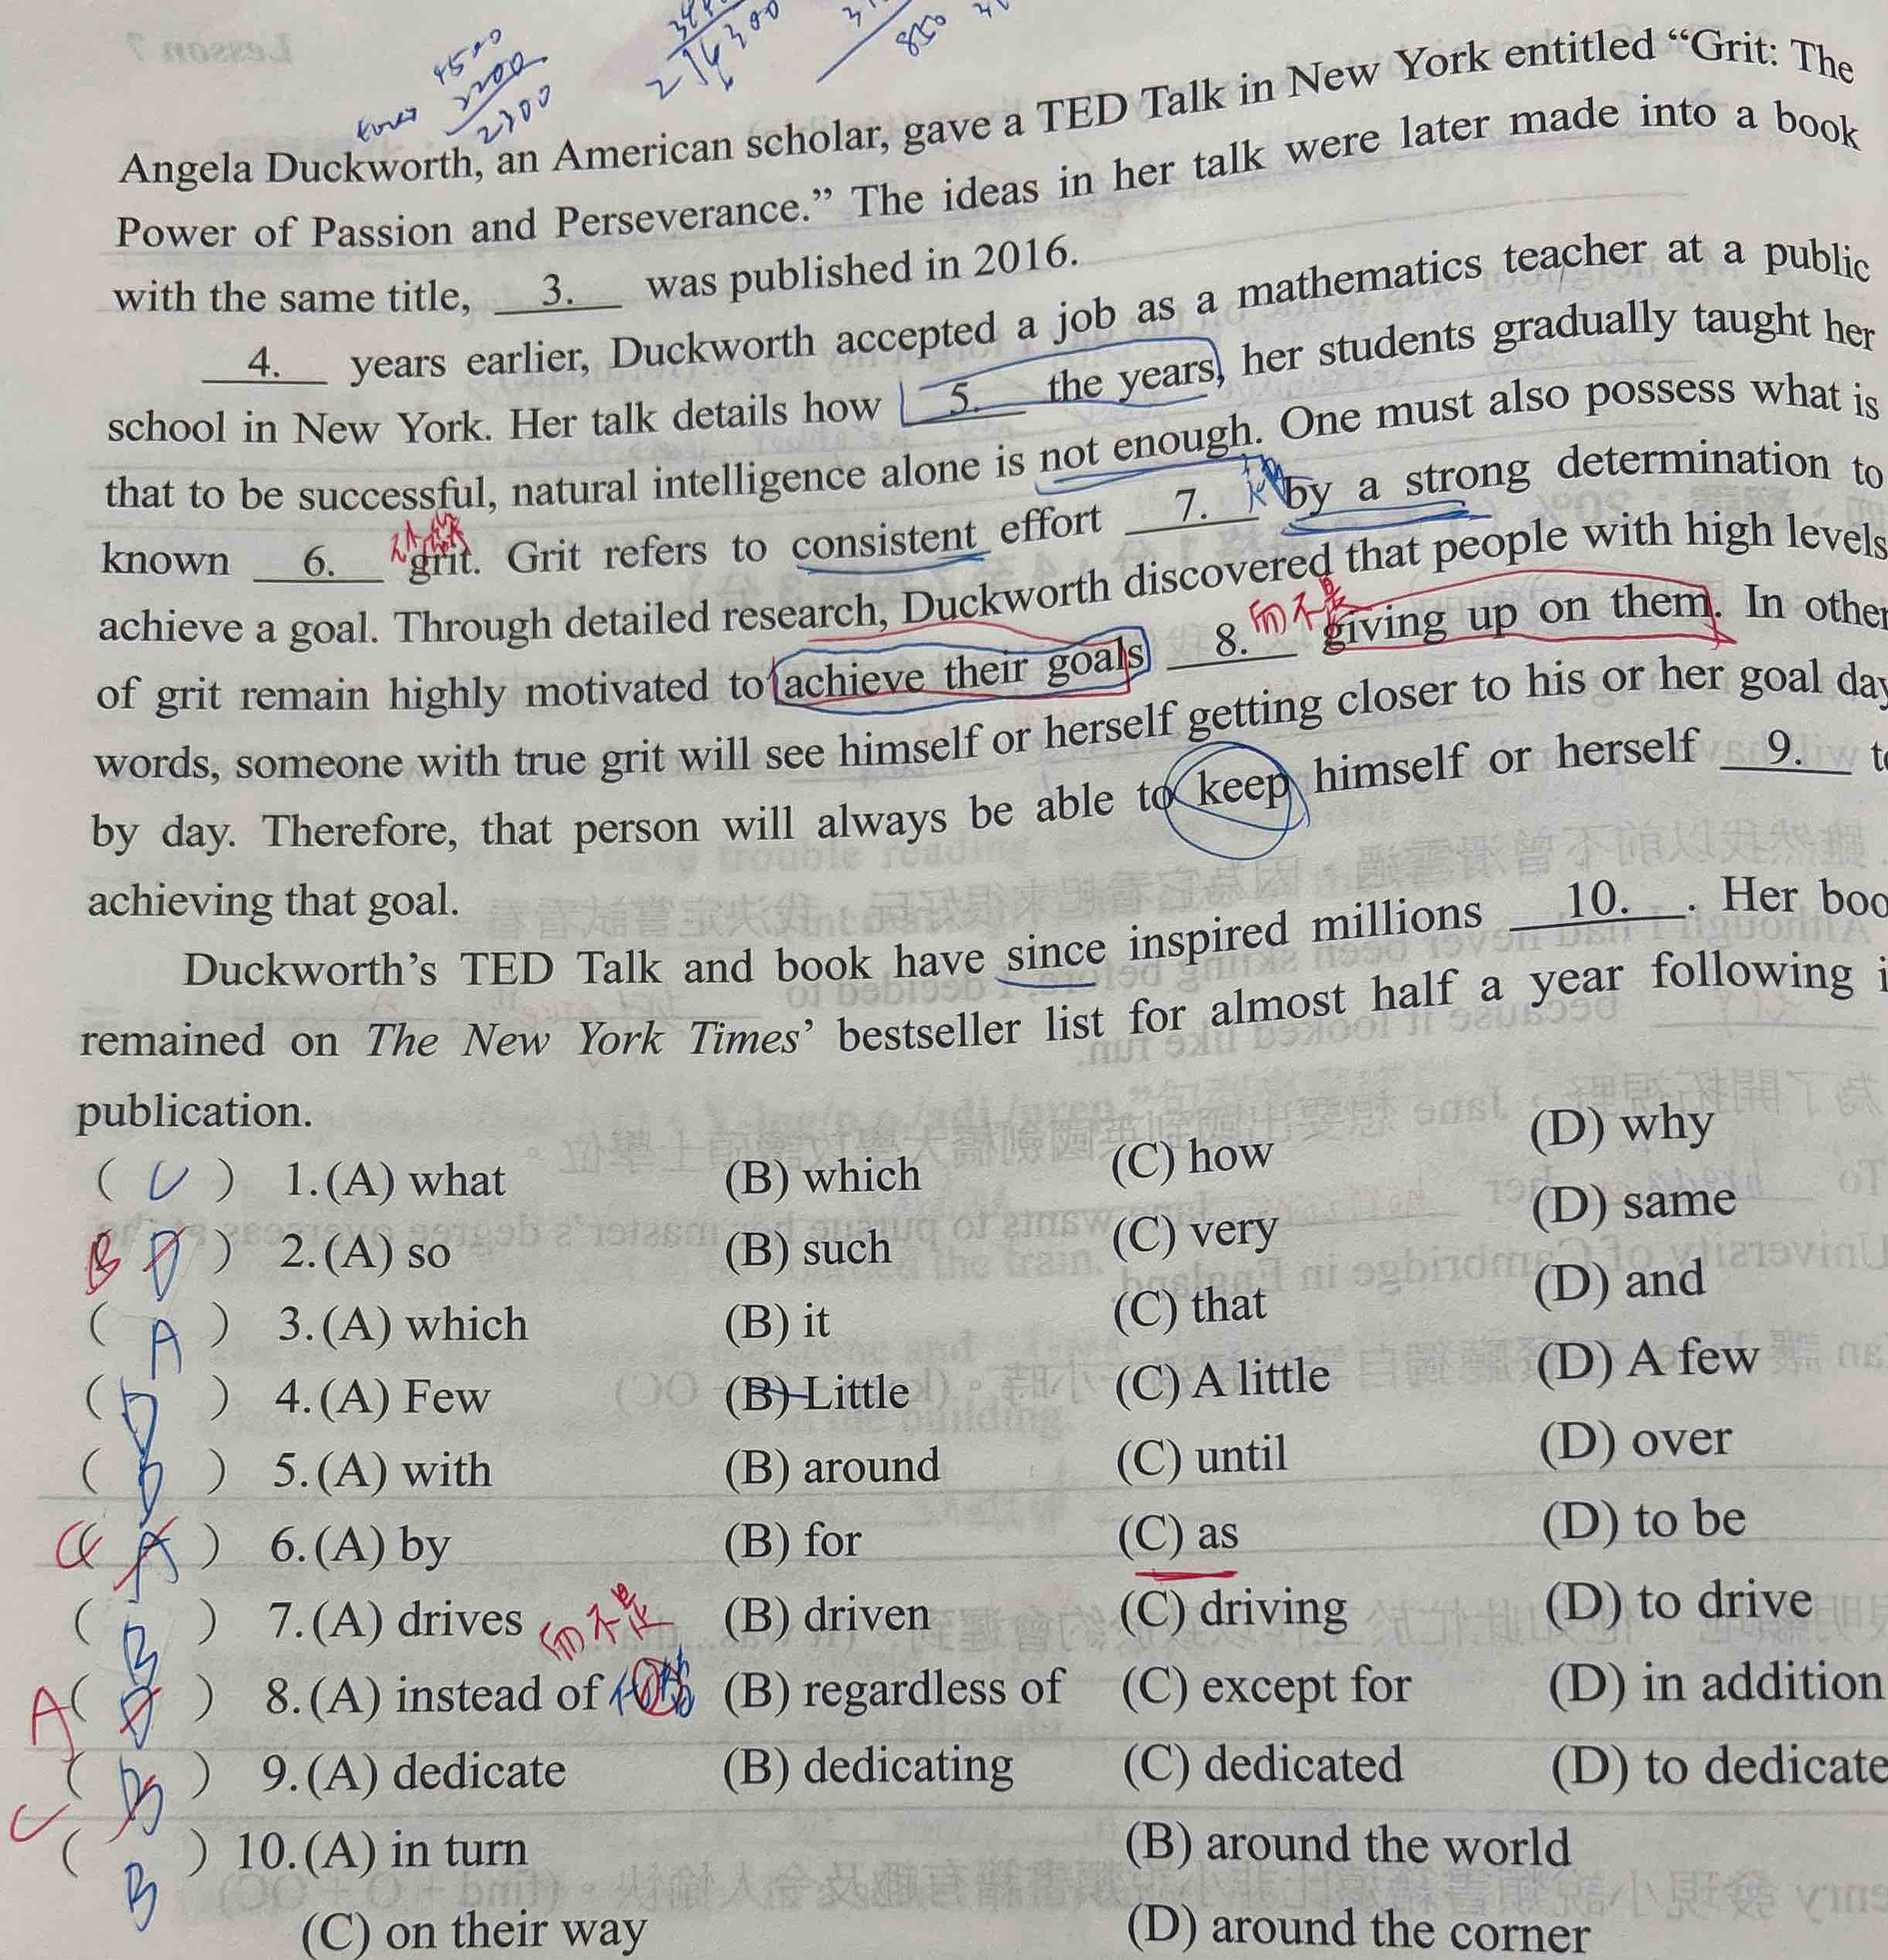 4500
2200
2300
Angela Duckworth, an American scholar, gave a TED Talk in New York entitled “Grit: The
Power of Passion and Perseverance.” The ideas in her talk were later made into a book
with the same title, 3. was published in 2016.
4. years earlier, Duckworth accepted a job as a mathematics teacher at a public
school in New York. Her talk details how 5. the years, her students gradually taught her
that to be successful, natural intelligence alone is not enough. One must also possess what is
known 6. grit. Grit refers to consistent effort 7. by a strong determination to
achieve a goal. Through detailed research, Duckworth discovered that people with high levels
of grit remain highly motivated to achieve their goals 8. 而不是 giving up on them. In other
words, someone with true grit will see himself or herself getting closer to his or her goal day
by day. Therefore, that person will always be able to keep himself or herself 9.
achieving that goal.
Duckworth’s TED Talk and book have since inspired millions 10. . Her
remained on The New York Times’ bestseller list for almost half a year following
publication.
( C ) 1. (A) what (B) which (C) how (D) why
B D ) 2. (A) so (B) such (C) very (D) same
( A ) 3. (A) which (B) it (C) that (D) and
( D ) 4. (A) Few (B) Little (C) A little (D) A few
( D ) 5. (A) with (B) around (C) until (D) over
C ( A ) 6. (A) by (B) for (C) as (D) to be
( B ) 7. (A) drives (B) driven (C) driving (D) to drive
而不是
A ( D ) 8. (A) instead of (B) regardless of (C) except for (D) in addition
C ( B ) 9. (A) dedicate (B) dedicating (C) dedicated (D) to dedicate
( B ) 10. (A) in turn (B) around the world
(C) on their way (D) around the corner